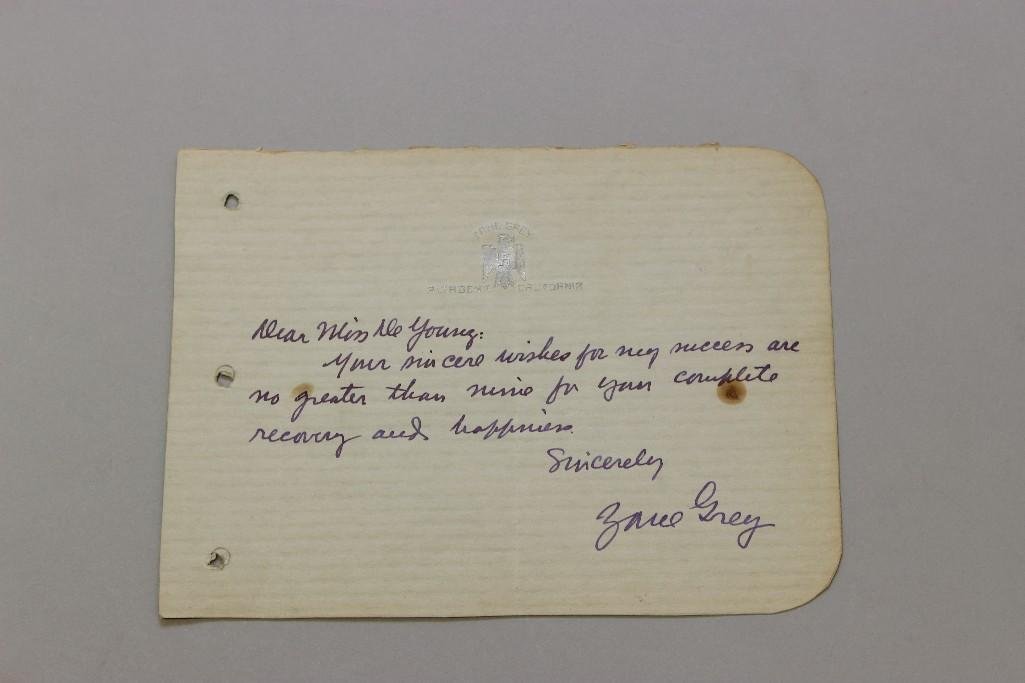 ZANE GREY
CALIFORNIA
Dear Miss De Young:
Your sincere wishes for my success are
no greater than mine for your complete
recovery and happiness.
Sincerely
Zane Grey